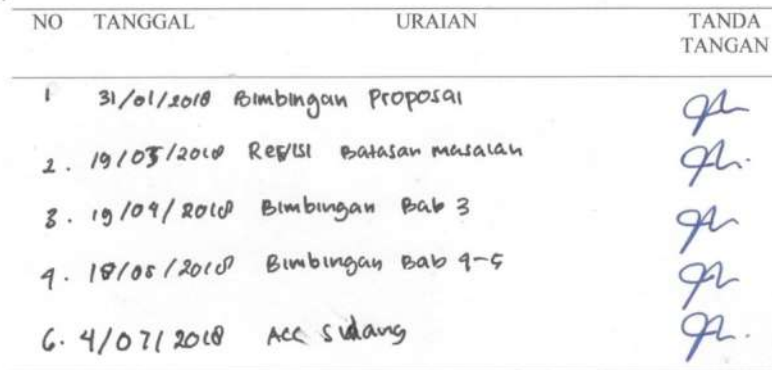 NO TANGGAL URAIAN TANDA TANGAN
1 31/01/2018 Bimbingan Proposal
2. 19/03/2018 Revisi Batasan masalah
3. 19/04/2018 Bimbingan Bab 3
4. 18/05/2018 Bimbingan Bab 4-5
6. 4/07/2018 Acc sidang